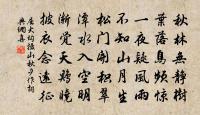 秋林無靜樹
葉落鳥頻驚
一夜疑風雨
不知山月生
松門開積翠
潭水入空明
漸覺天雞曉
披衣念遠征
屈大均攝山秋夕作